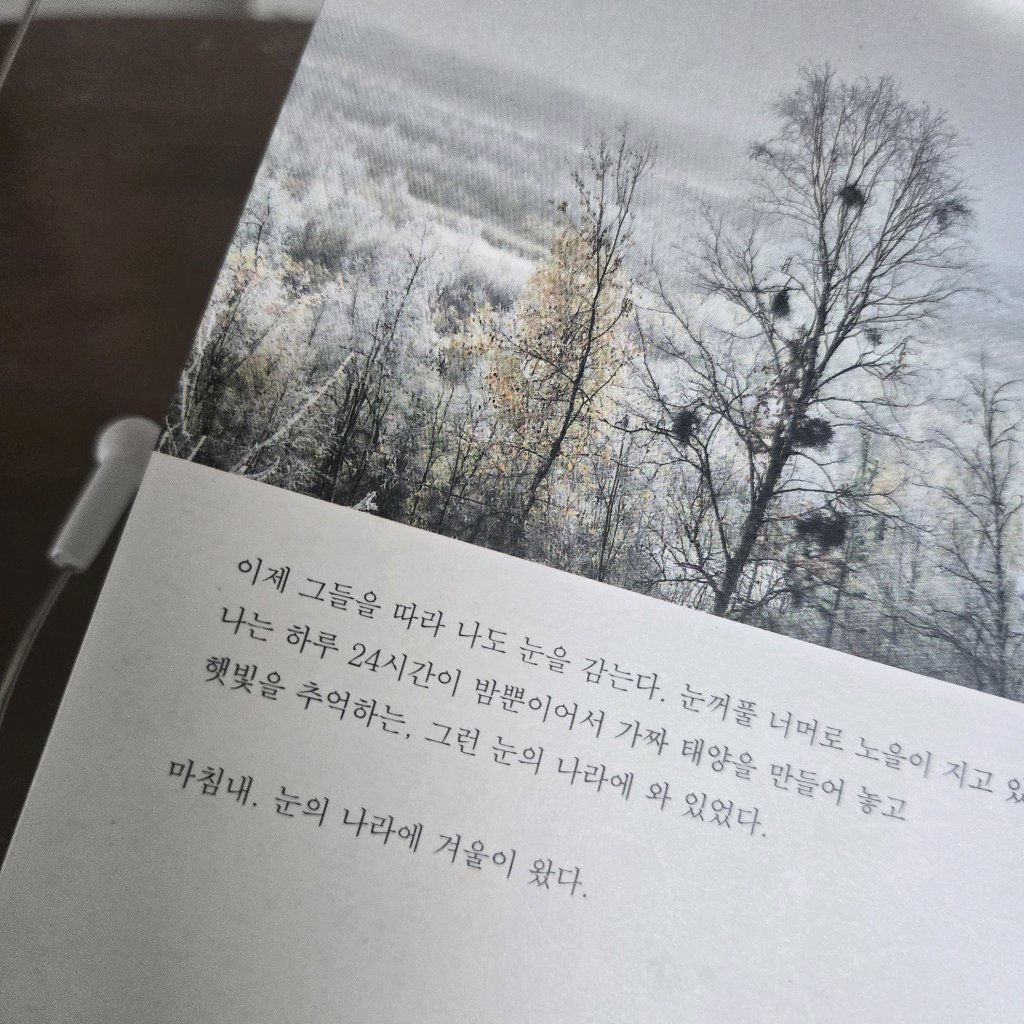 이제 그들을 따라 나도 눈을 감는다. 눈꺼풀 너머로 노을이 지고
나는 하루 24시간이 밤뿐이어서 가짜 태양을 만들어 놓고
햇빛을 추억하는, 그런 눈의 나라에 와 있었다.
마침내. 눈의 나라에 겨울이 왔다.